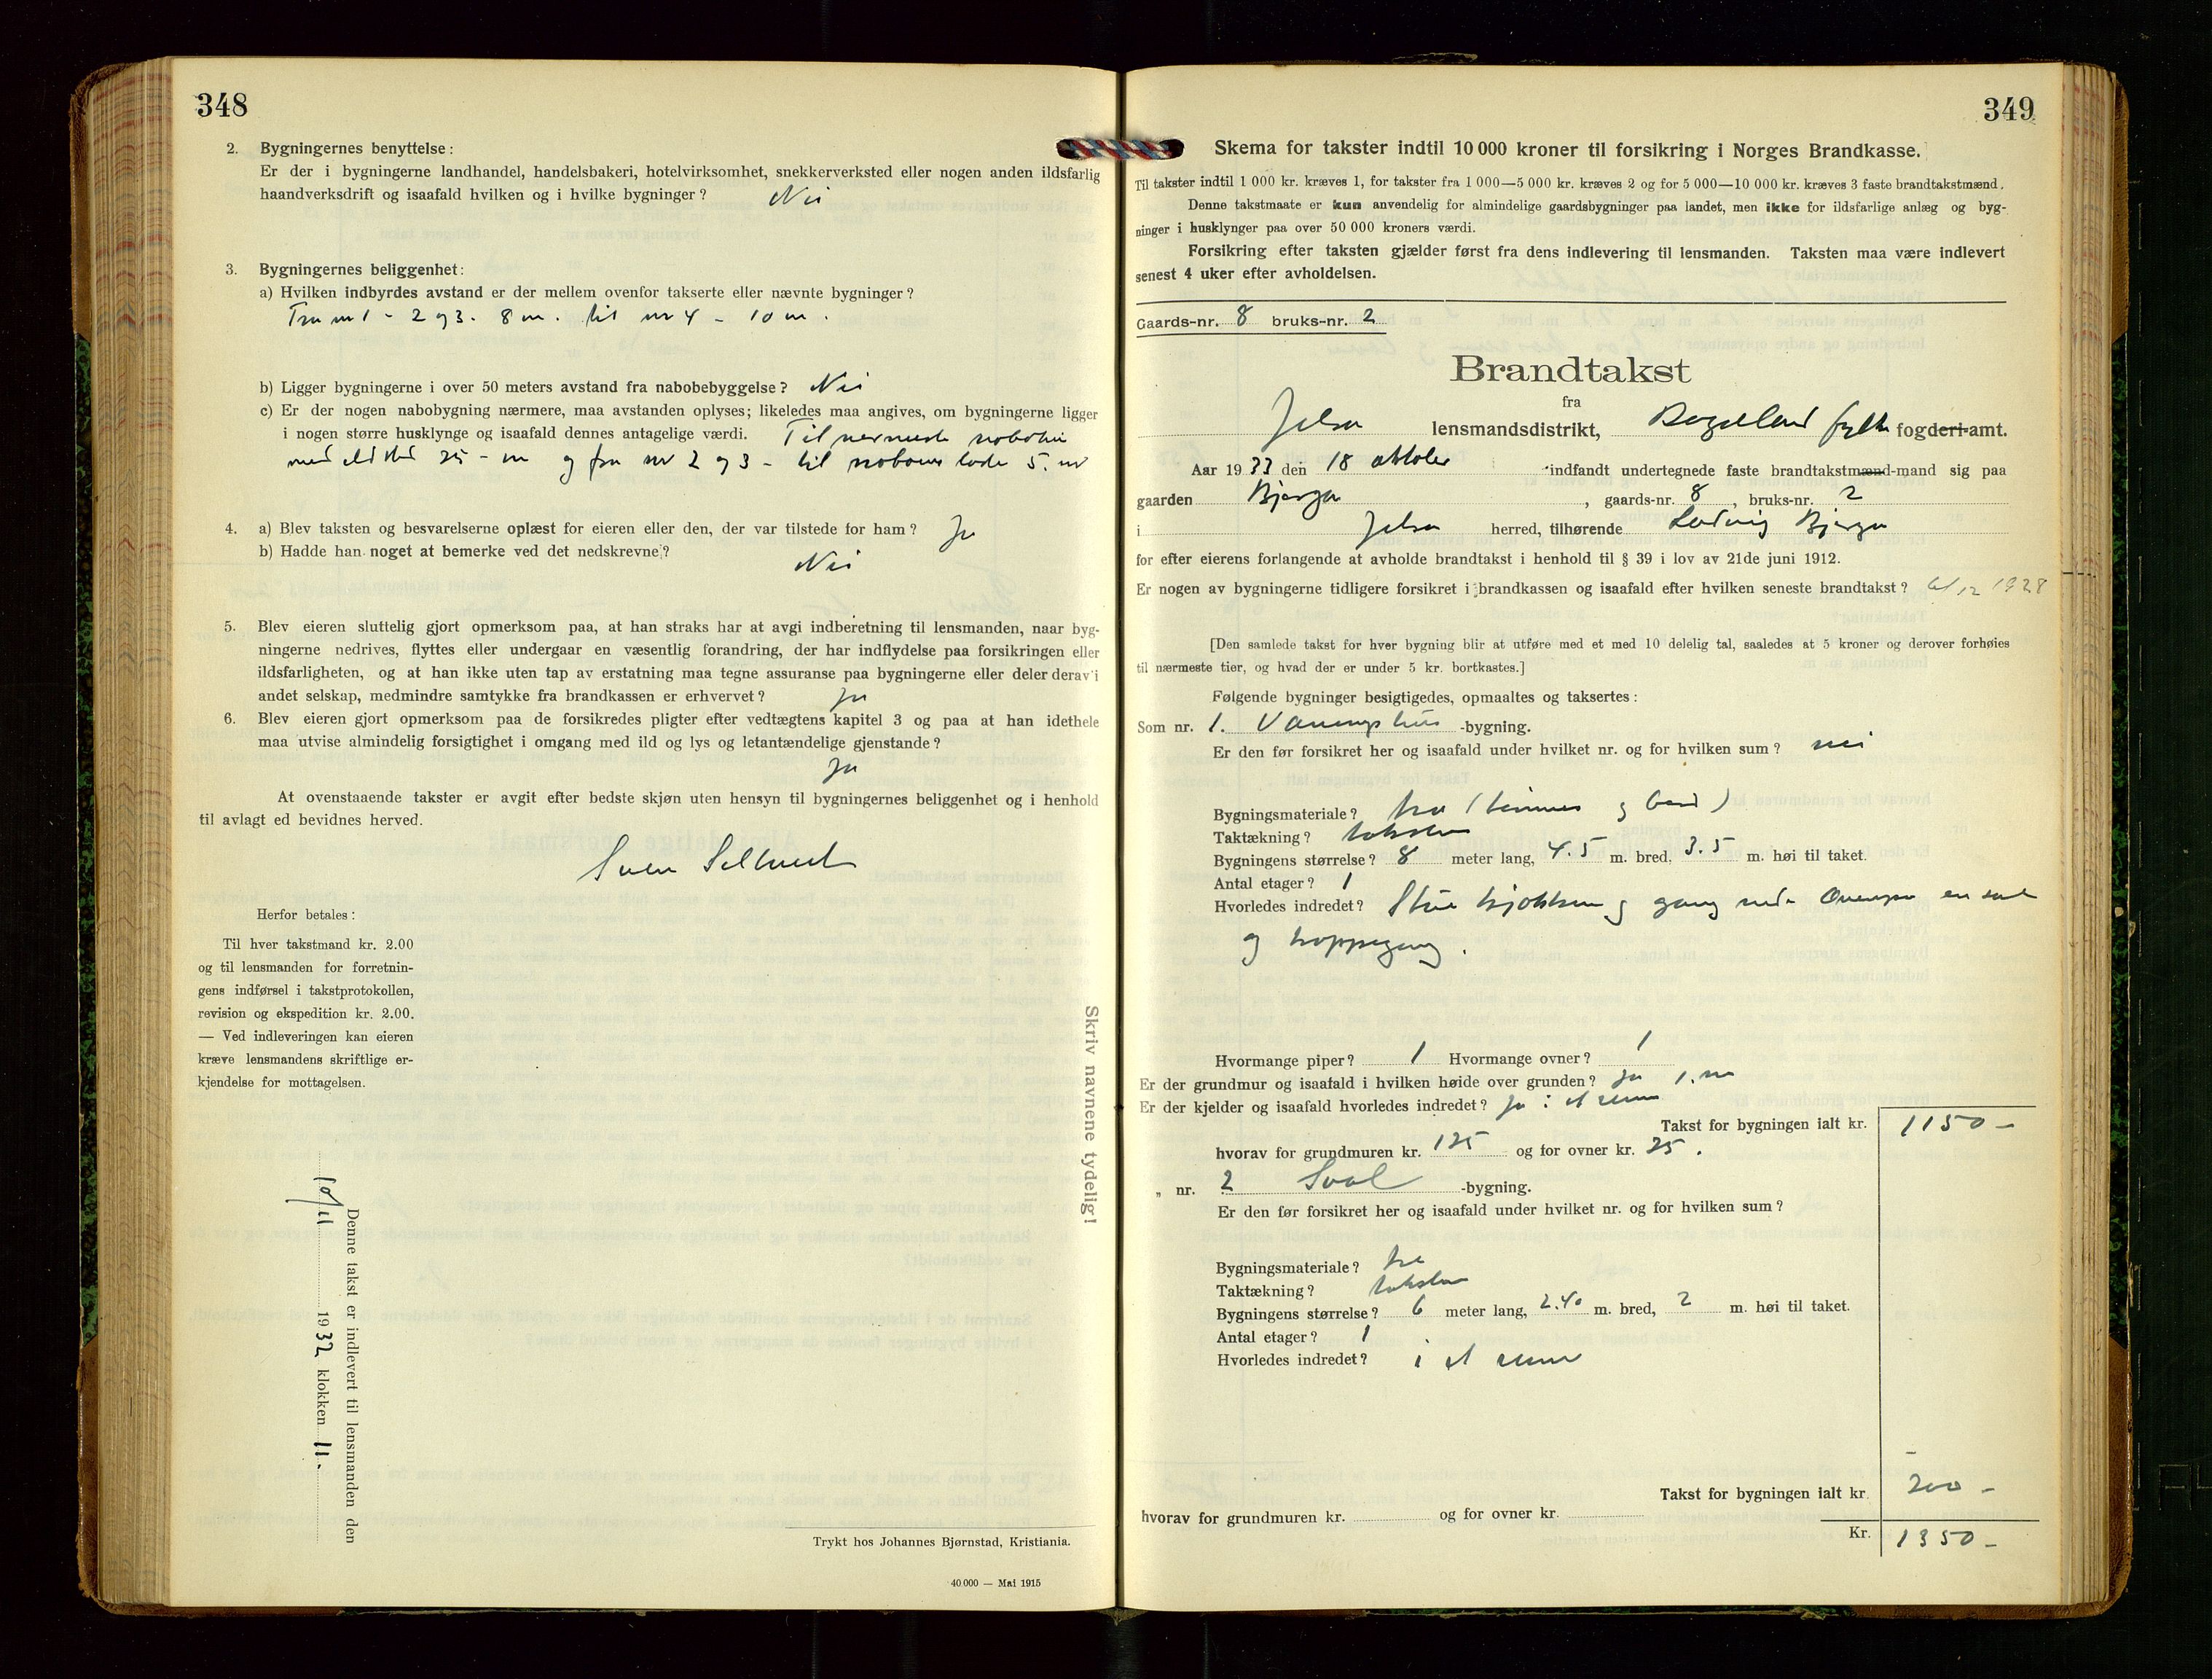 348
2. Bygningernes benyttelse:
Er der i bygningerne landhandel, handelsbakeri, hotelvirksomhet, snekkerverksted eller nogen anden ildsfarlig
haandverksdrift og isaafald hvilken og i hvilke bygninger? Nei
3. Bygningernes beliggenhet:
a) Hvilken indbyrdes avstand er der mellem ovenfor takserte eller nævnte bygninger?
Fra nr 1 - 2 og 3 - 8 m. til nr 4 - 10 m.
b) Ligger bygningerne i over 50 meters avstand fra nabobebyggelse? Nei
c) Er der nogen nabobygning nærmere, maa avstanden oplyses; likeledes maa angives, om bygningerne ligger
i nogen større husklynge og isaafald dennes antagelige værdi. Til nermeste
med ildsted 25 - m og fra nr 2 og 3 - til naboens løde 5. m
4. a) Blev taksten og besvarelserne oplæst for eieren eller den, der var tilstede for ham? Ja
b) Hadde han noget at bemerke ved det nedskrevne? Nei
5. Blev eieren sluttelig gjort opmerksom paa, at han straks har at avgi indberetning til lensmanden, naar byg-
ningerne nedrives, flyttes eller undergaar en væsentlig forandring, der har indflydelse paa forsikringen eller
ildsfarligheten, og at han ikke uten tap av erstatning maa tegne assuranse paa bygningerne eller deler derav i
andet selskap, medmindre samtykke fra brandkassen er erhvervet? Ja
6. Blev eieren gjort opmerksom paa de forsikredes pligter efter vedtægtens kapitel 3 og paa at han idethele
maa utvise almindelig forsigtighet i omgang med ild og lys og letantændelige gjenstande?
Ja
At ovenstaaende takster er avgit efter bedste skjøn uten hensyn til bygningernes beliggenhet og i henhold
til avlagt ed bevidnes herved.
Herfor betales:
Til hver takstmand kr. 2.00
og til lensmanden for forretnin-
gens indførsel i takstprotokollen,
revision og ekspedition kr. 2.00.
— Ved indleveringen kan eieren
kræve lensmandens skriftlige er-
kjendelse for mottagelsen.
Skriv navnene tydelig!
Denne takst er indlevert til lensmanden den
10/11 1932 klokken 11.
Trykt hos Johannes Bjørnstad, Kristiania.
40.000 — Mai 1915
349
Skema for takster indtil 10 000 kroner til forsikring i Norges Brandkasse.
Til takster indtil 1 000 kr. kræves 1, for takster fra 1 000—5 000 kr. kræves 2 og for 5 000—10 000 kr. kræves 3 faste brandtakstmænd.
Denne takstmaate er kun anvendelig for almindelige gaardsbygninger paa landet, men ikke for ildsfarlige anlæg og byg-
ninger i husklynger paa over 50 000 kroners værdi.
Forsikring efter taksten gjælder først fra dens indlevering til lensmanden. Taksten maa være indlevert
senest 4 uker efter avholdelsen.
Gaards-nr. 8 bruks-nr. 2
Brandtakst
fra
Jelsa lensmandsdistrikt, Rogaland fylke fogderi-amt.
Aar 1933 den 18 oktober indfandt undertegnede faste brandtakstmænd-mand sig paa
gaarden Bjerga, gaards-nr. 8, bruks-nr. 2
i Jelsa herred, tilhørende Ludvig Bjerga
for efter eierens forlangende at avholde brandtakst i henhold til § 39 i lov av 21de juni 1912.
Er nogen av bygningerne tidligere forsikret i brandkassen og isaafald efter hvilken seneste brandtakst? 6/12 1928
[Den samlede takst for hver bygning blir at utføre med et med 10 delelig tal, saaledes at 5 kroner og derover forhøies
til nærmeste tier, og hvad der er under 5 kr. bortkastes.]
Følgende bygninger besigtigedes, opmaaltes og taksertes:
Som nr. 1. Vaaningshus -bygning.
Er den før forsikret her og isaafald under hvilket nr. og for hvilken sum? nei
Bygningsmateriale? tre (tømmer og bord)
Taktækning? taksten
Bygningens størrelse? 8 meter lang, 4.5 m. bred, 3.5 m. høi til taket.
Antal etager? 1
Hvorledes indredet? Stue kjøkken og gang nede Ovenpa en sal
og trappegang.
Hvormange piper? 1 Hvormange ovner? 1
Er der grundmur og isaafald i hvilken høide over grunden? Ja 1. m
Er der kjelder og isaafald hvorledes indredet? Ja i et rum
Takst for bygningen ialt kr. 1150 -
hvorav for grundmuren kr. 125 og for ovner kr. 25.
„ nr. 2 Sval -bygning.
Er den før forsikret her og isaafald under hvilket nr. og for hvilken sum?
Bygningsmateriale? tre
Taktækning? taksten
Bygningens størrelse? 6 meter lang, 2.40 m. bred, 2 m. høi til taket.
Antal etager? 1
Hvorledes indredet? i et rum
Takst for bygningen ialt kr. 200 -
hvorav for grundmuren kr. og for ovner kr.
Kr. 1350 -